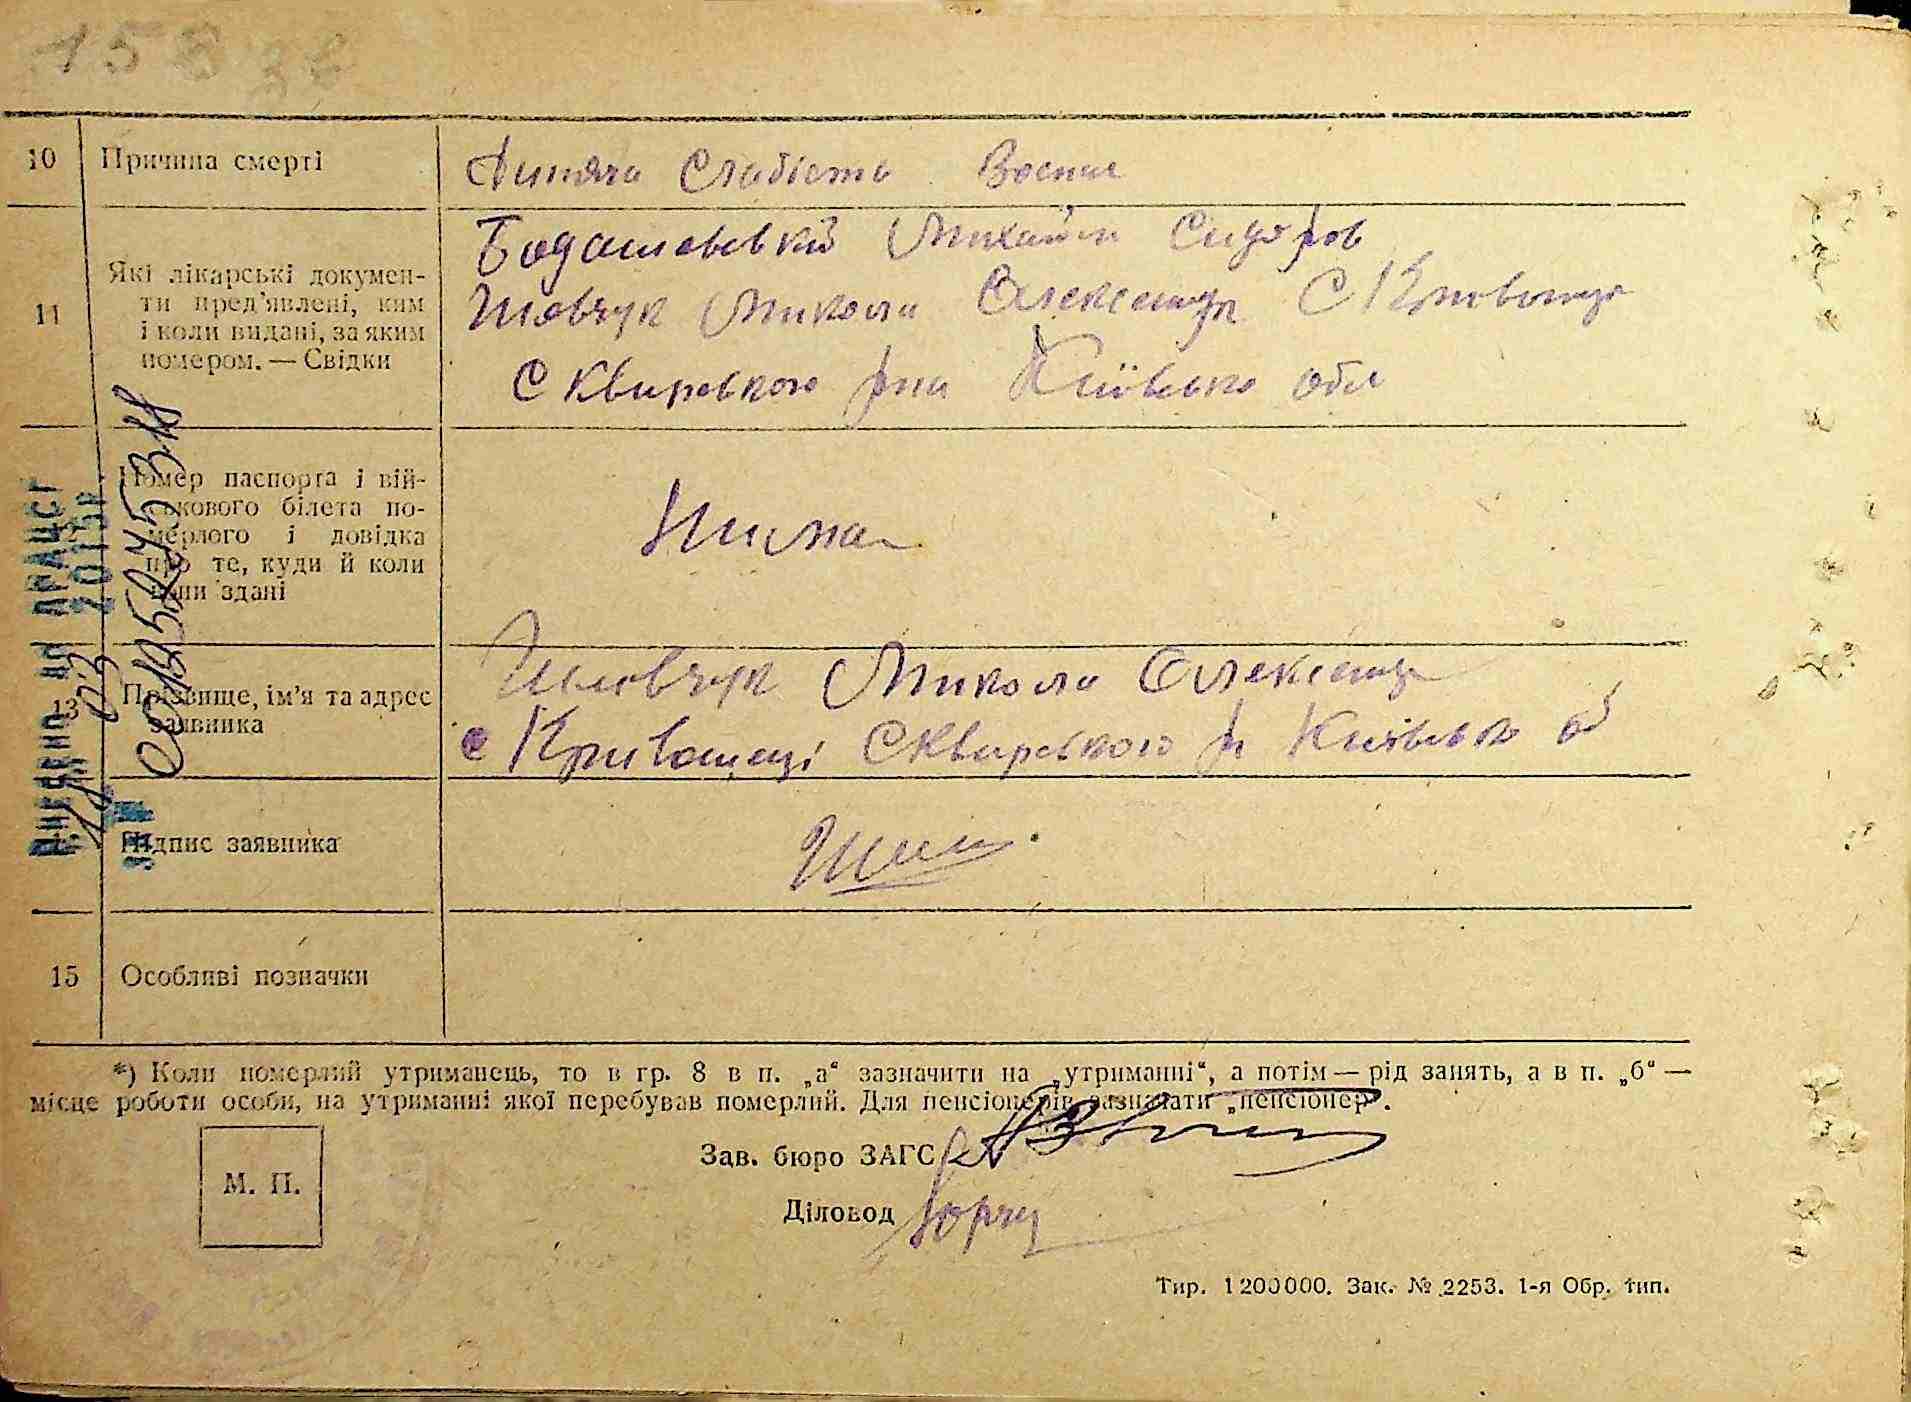 158
10 Причина смерті Дитяча Слабість
Бодашевський Михайло Сидоров
11 Які лікарські докумен-
ти пред'явлені, ким
і коли видані, за яким
номером. — Свідки
Шевчук Микола Олександр С Кривошиї
Сквирського рна Київсько обл
Номер паспорта і вій-
ськового білета по-
мерлого і довідка
про те, куди й коли
вони здані
Нима
13 Прізвище, ім'я та адрес
заявника
Шевчук Микола Олександр
с Кривошеці Сквирського р Київсько об
Підпис заявника
15 Особливі позначки
*) Коли померлий утриманець, то в гр. 8 в п. „а“ зазначити на „утриманні“, а потім — рід занять, а в п. „б“ —
місце роботи особи, на утриманні якої перебував померлий. Для пенсіонерів зазначати „пенсіонер“.
Зав. бюро ЗАГС
М. П.
Діловод
Тир. 1200000. Зак. № 2253. 1-я Обр. тип.